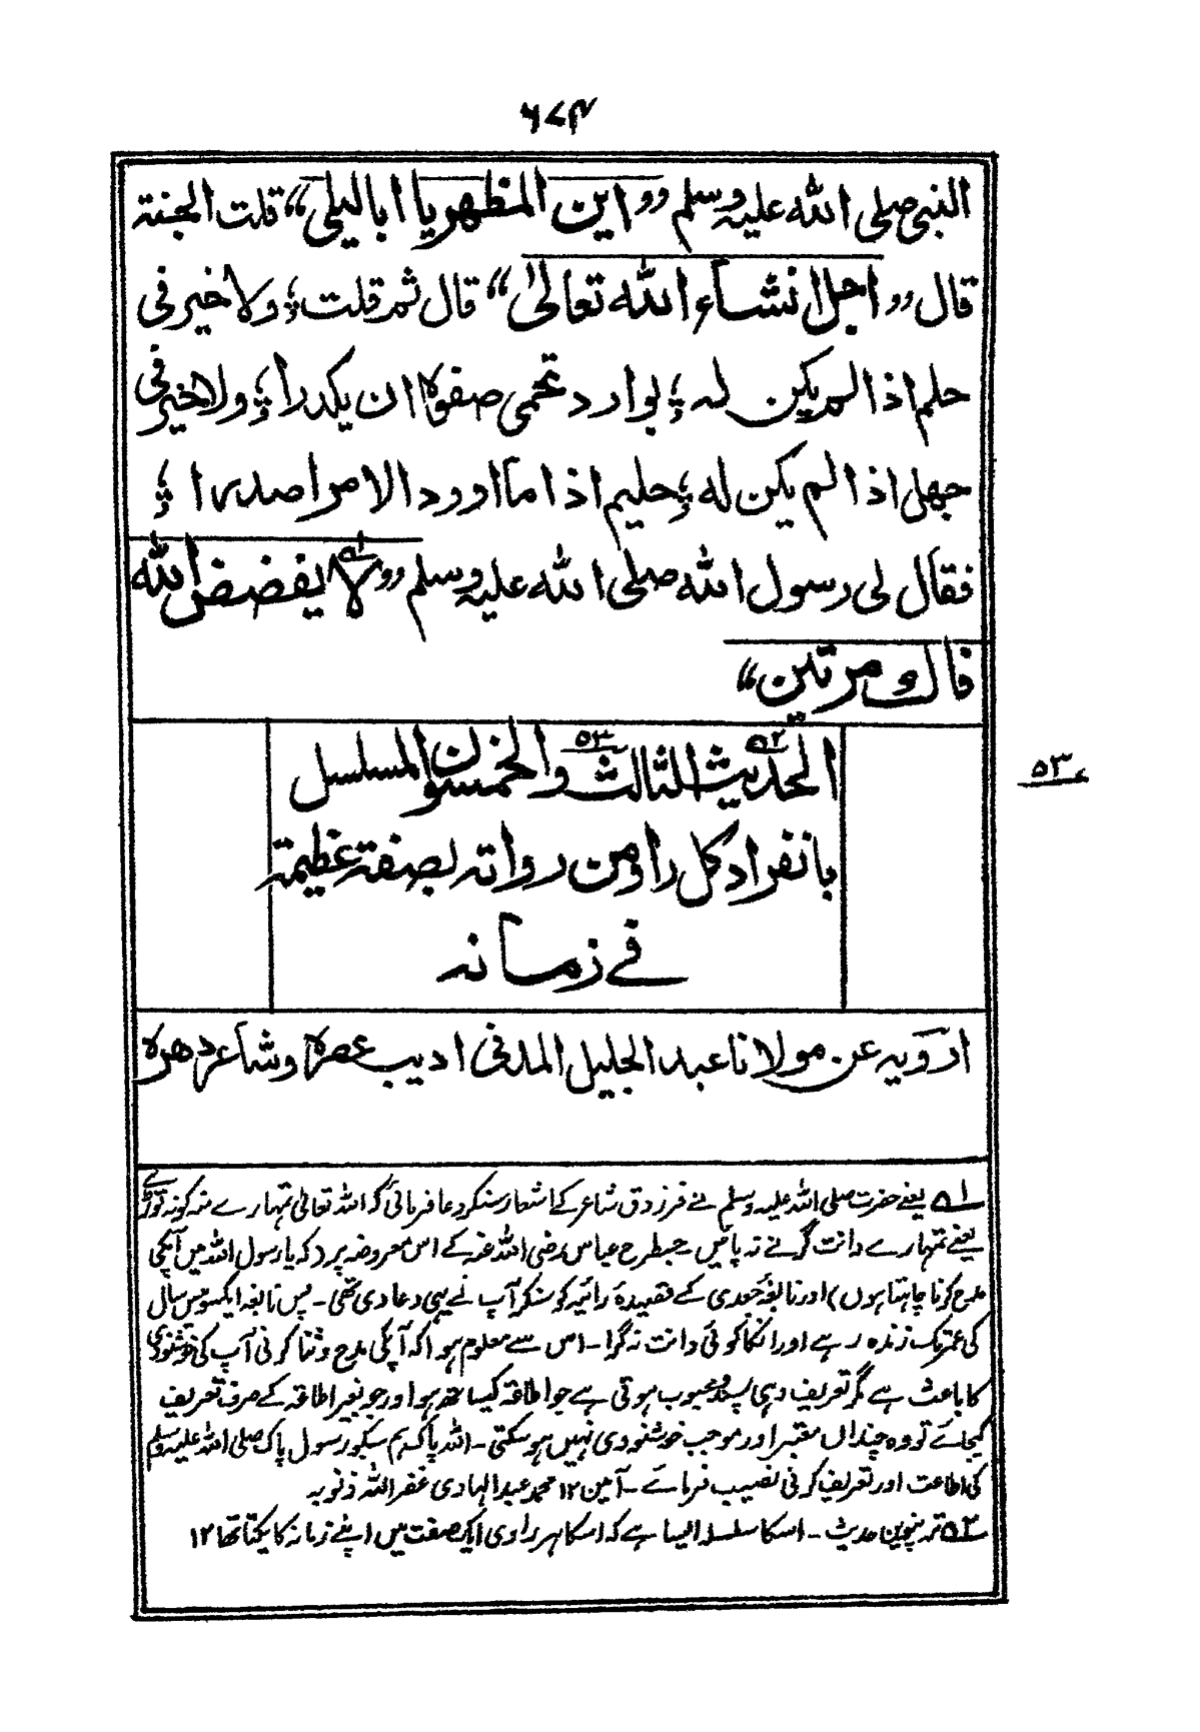 ۶۷۴
النبی صلی اللہ علیہ وسلم ”این المظہر یا ابا لیلی“ قلت الجنۃ
قال ”اجل انشاء اللہ تعالیٰ“ قال ثم قلت ؛ ولا خیر فی
حلم اذا لم یکن لہ ؛ بوادر تحمی صفوہ ان یکدرا ؛ ولا خیر فی
جھل اذا لم یکن لہ ؛ حلیم اذا ما اورد الامر اصدرا ؛
فقال لی رسول اللہ صلی اللہ علیہ وسلم ”لا ۵۱ یفضض اللہ
فاك مرتین“
الحدیث ۵۲ الثالث ۵۳ والخمسون المسلسل
۵۳
بانفراد کل راو من رواتہ بصفۃ عظیمۃ
فے زمانہ
ارویہ عن مولانا عبد الجلیل المدنی ادیب عصرہ وشاعر دھرہ
۵۱ یعنے حضرت صلی اللہ علیہ وسلم نے فرزدق شاعر کے اشعار سنکر دعا فرمائی کہ اللہ تعالیٰ تمہارے منہ کو نہ توڑے
یعنے تمہارے دانت گرنے نہ پائیں جسطرح عباس رضی اللہ عنہ کے اس معروضہ پر (کہ یا رسول اللہ میں آپکی
مدح کرنا چاہتا ہوں) اور نابغۂ جعدی کے قصیدۂ رائیہ کو سنکر آپ نے یہی دعا دی تھی۔ پس نابغہ ایکسو بیس سال
کی عمر تک زندہ رہے اور انکا کوئی دانت نہ گرا۔ اس سے معلوم ہوا کہ آپکی مدح و ثنا کرنی آپ کی خوشنودی
کا باعث ہے مگر تعریف وہی پسند و محبوب ہوتی ہے جو اطاقہ کیساتھ ہو اور جو بغیر اطاقہ کے صرف تعریف
کیجائے تو وہ چنداں معتبر اور موجب خوشنودی نہیں ہو سکتی۔ اللہ پاک ہم سبکو رسول پاک صلی اللہ علیہ وسلم
کی اطاعت اور تعریف کرنی نصیب فرمائے۔ آمین ۱۲ محمد عبد الہادی غفر اللہ ذنوبہ
۵۲ ترپنویں حدیث۔ اسکا سلسلہ ایسا ہے کہ اسکا ہر راوی ایک صفت میں اپنے زمانہ کا یکتا تھا ۱۲